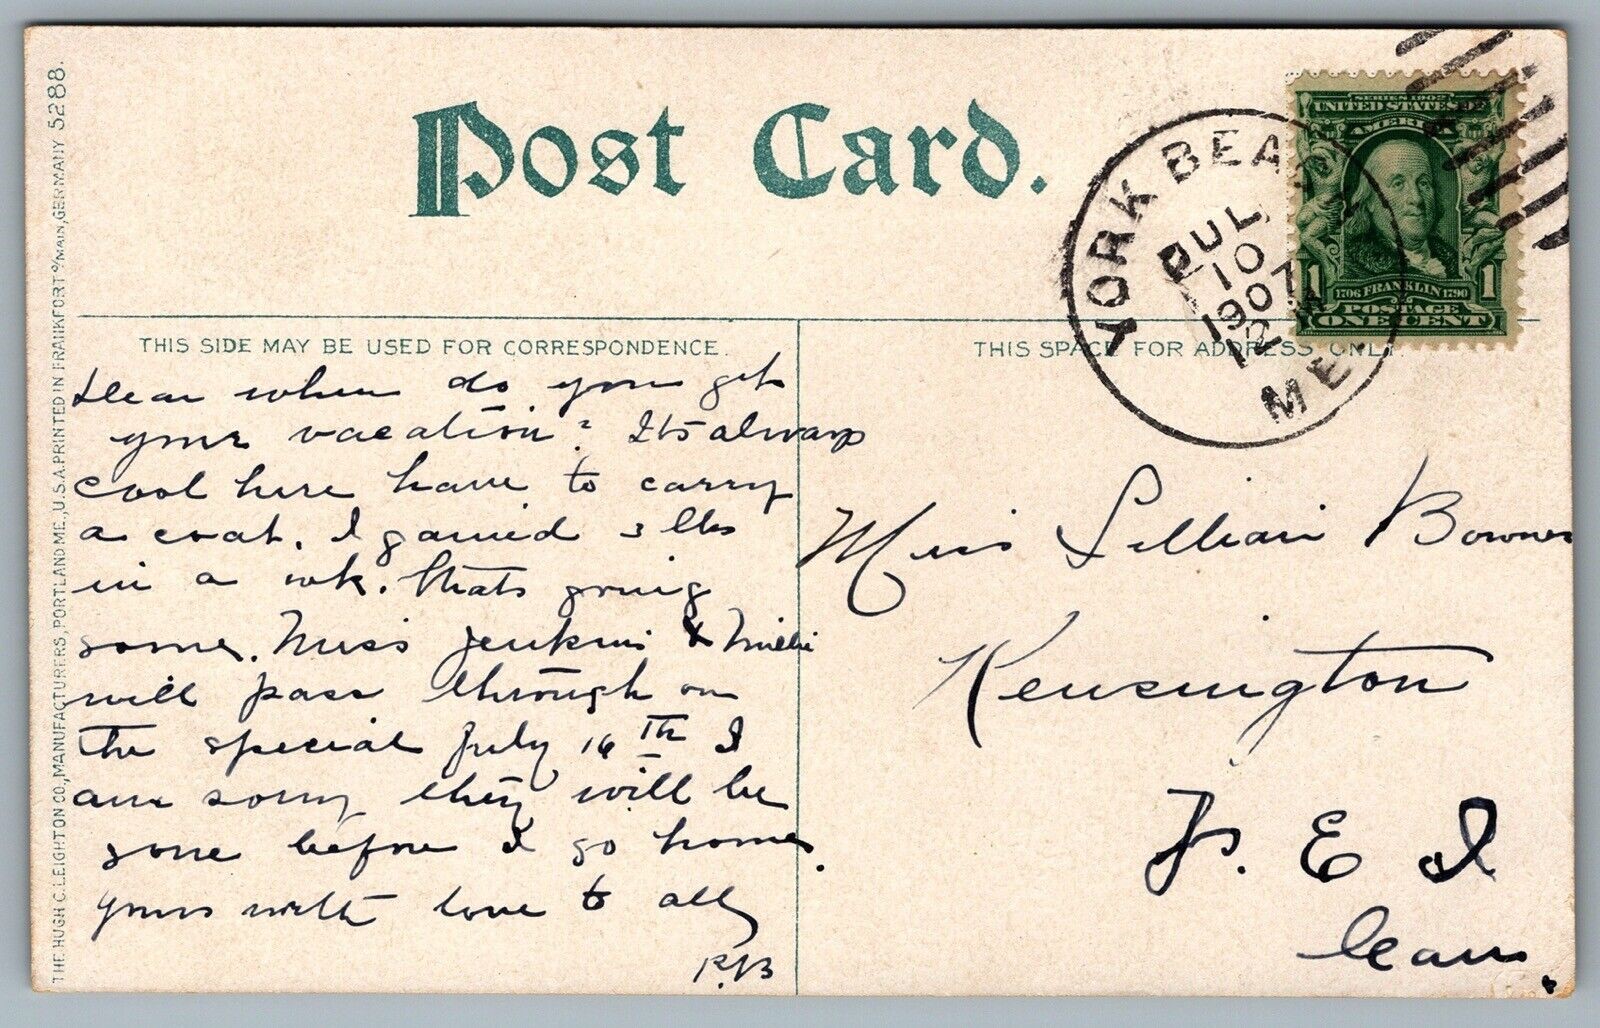 Post Card.
THE HUGH C. LEIGHTON CO., MANUFACTURERS, PORTLAND ME., U.S.A. PRINTED IN FRANKFORT o/MAIN, GERMANY 5288.
YORK BEACH
JUL
10
1907
12 M
ME.
SERIES 1902
UNITED STATES OF
AMERICA
1 1
1706 FRANKLIN 1790
POSTAGE
ONE CENT
THIS SIDE MAY BE USED FOR CORRESPONDENCE.
THIS SPACE FOR ADDRESS ONLY.
Dear when do you get
your vacation? Its always
cool here have to carry
a coat. I gained 3 lbs
in a wk. thats going
some. Miss Jenkins & Millie
will pass through on
the special July 16th I
am sorry they will be
gone before I go home.
yours with love to all
Miss Lillian Bowness
Kensington
P. E I
Can